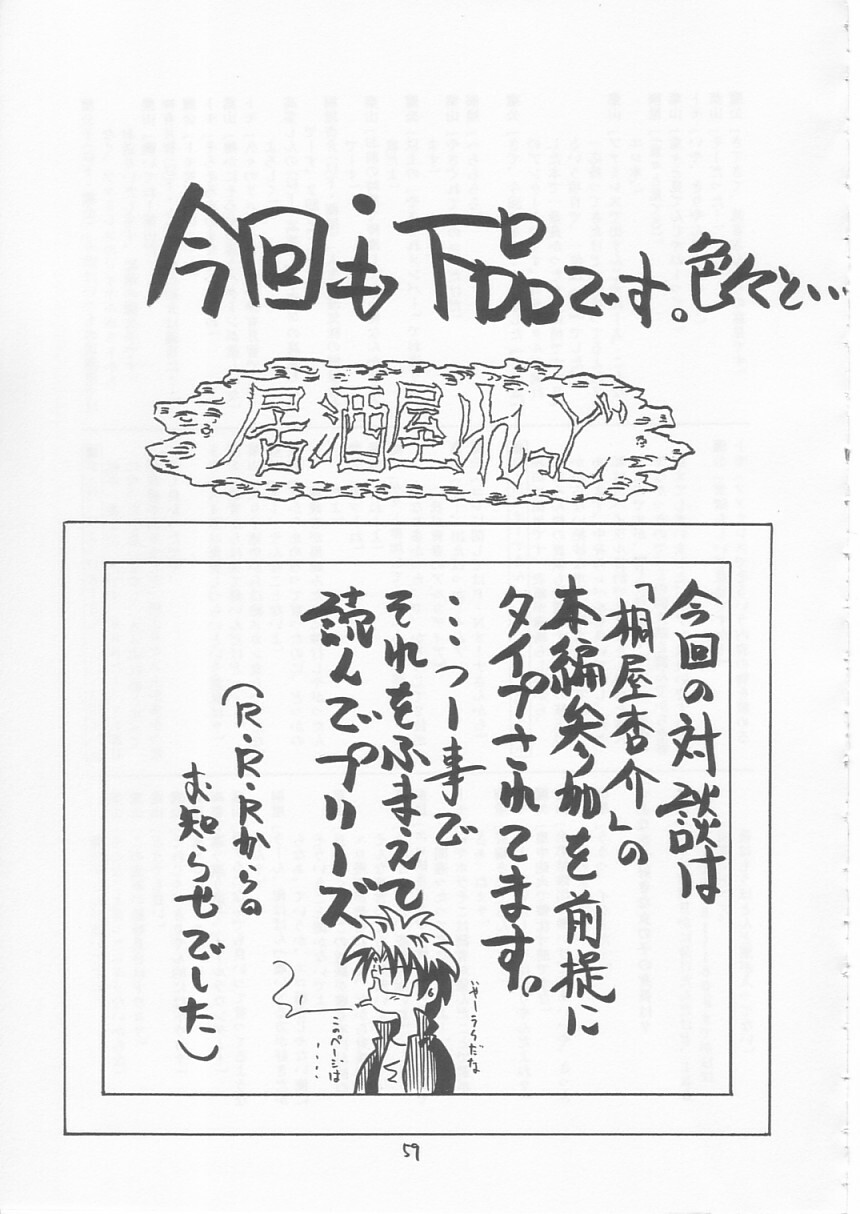 今回も下品です。色々と…
居酒屋れっど
今回の対談は
「桐屋杏介」の
本編参加を前提に
タイプされてます。
…つー事で
それをふまえて
読んでプリーズ
（R・R・Rからの
お知らせでした）
このページは
……
59